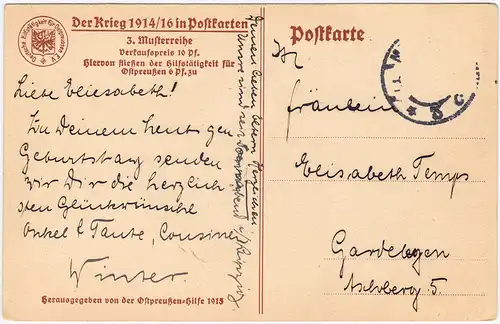 Der Krieg 1914/16 in Postkarten
3. Musterreihe
Verkaufspreis 10 Pf.
Hiervon fließen der Hilfstätigkeit für
Ostpreußen 6 Pf. zu
Liebe Eliesabeth!
Zu Deinem heutigen
Geburtstag senden
wir Dir die herzlich
sten Glückwünsche
Onkel & Tante, Cousine
Winter.
Herausgegeben von der Ostpreußen-Hilfe 1915
Deinen lieben Eltern
Postkarte
Fräulein
Elisabeth Temps
Gardelegen
5.